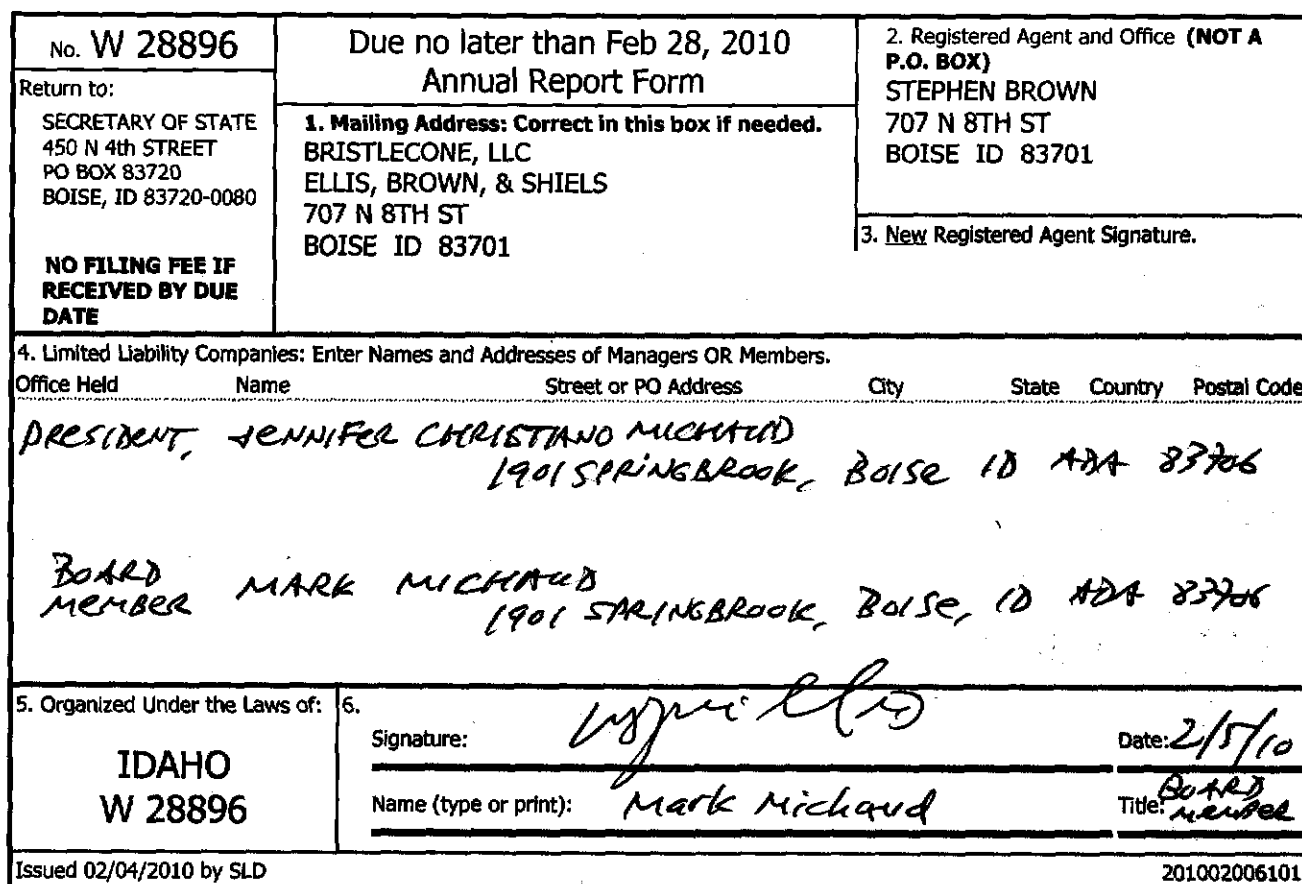 No. W 28896
Return to:
SECRETARY OF STATE
450 N 4th STREET
PO BOX 83720
BOISE, ID 83720-0080
NO FILING FEE IF
RECEIVED BY DUE
DATE
Due no later than Feb 28, 2010
Annual Report Form
1. Mailing Address: Correct in this box if needed.
BRISTLECONE, LLC
ELLIS, BROWN, & SHIELS
707 N 8TH ST
BOISE ID 83701
2. Registered Agent and Office (NOT A
P.O. BOX)
STEPHEN BROWN
707 N 8TH ST
BOISE ID 83701
3. New Registered Agent Signature.
4. Limited Liability Companies: Enter Names and Addresses of Managers OR Members.
Office Held Name Street or PO Address City State Country Postal Code
PRESIDENT, JENNIFER CHRISTIANO MICHAUD
1901 SPRINGBROOK, BOISE ID ADA 83706
BOARD
MEMBER MARK MICHAUD
1901 SPRINGBROOK, BOISE, ID ADA 83706
5. Organized Under the Laws of:
IDAHO
W 28896
6.
Signature:
Date: 2/5/10
Name (type or print): Mark Michaud
Title: BOARD
MEMBER
Issued 02/04/2010 by SLD
201002006101